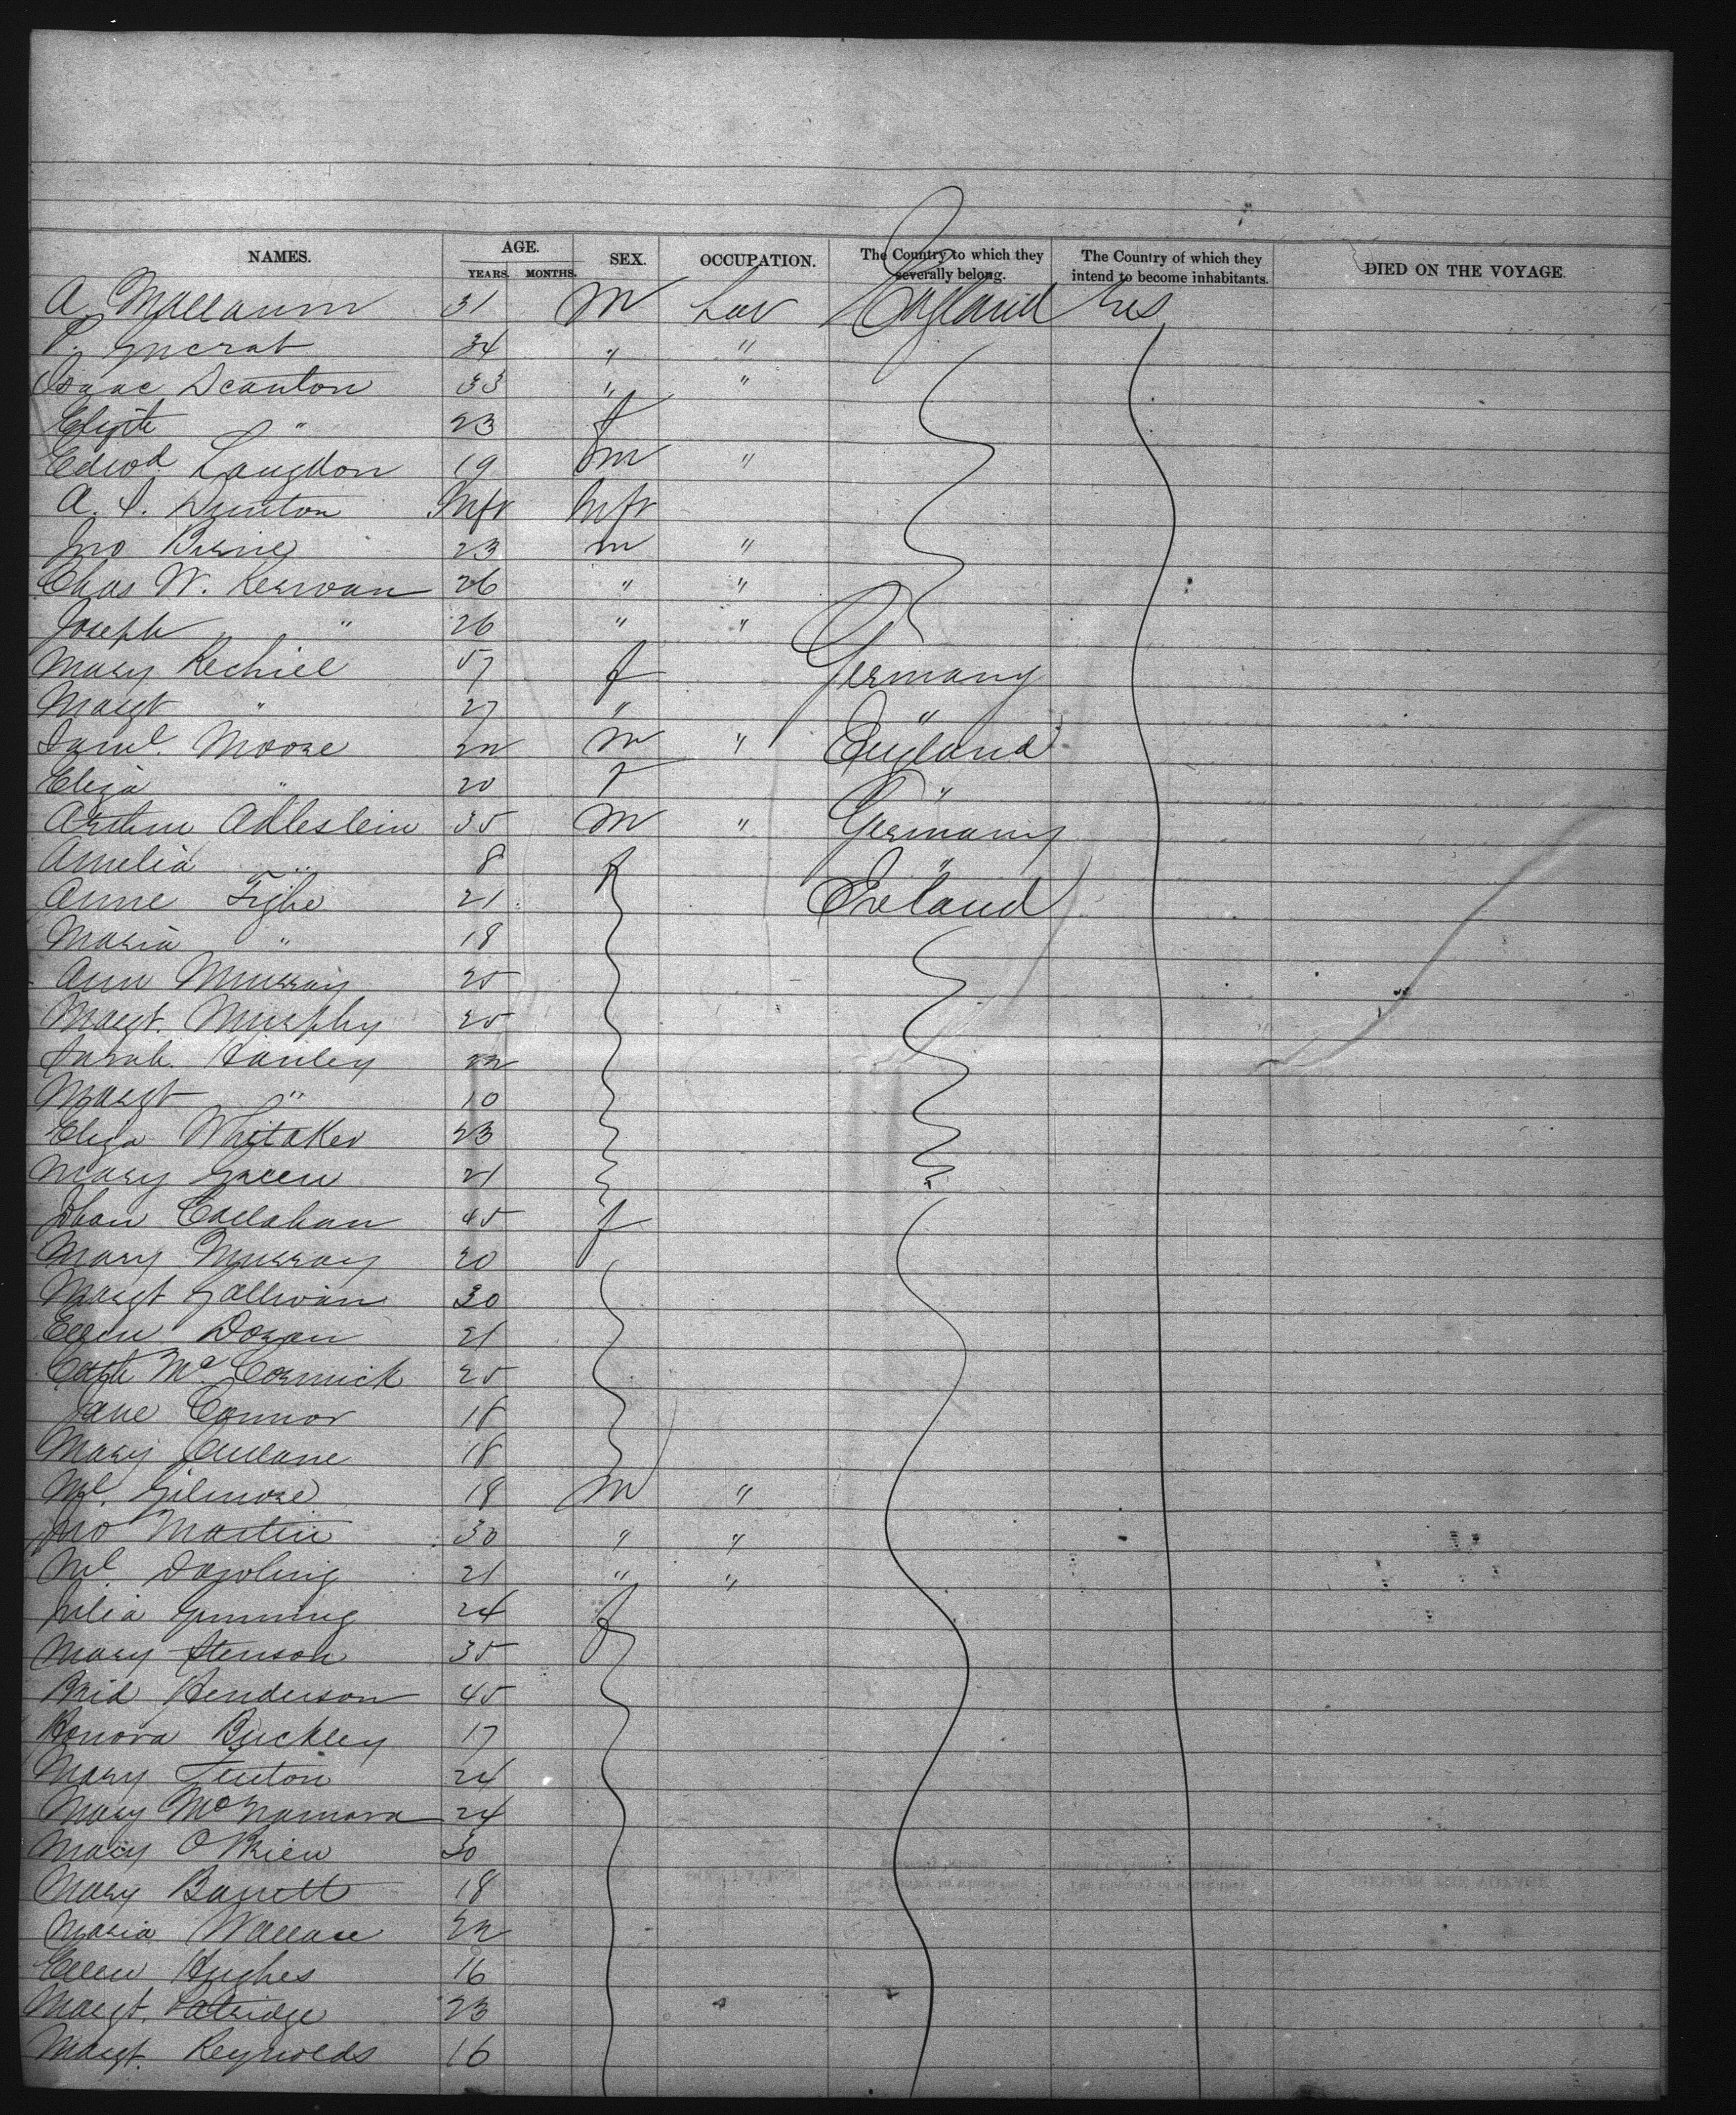 NAMES. AGE. SEX. OCCUPATION. The Country to which they severally belong. The Country of which they intend to become inhabitants. DIED ON THE VOYAGE.
YEARS. MONTHS.
A 31 M Lab England
P. 34 " "
Isaac Scanton 33 " "
" 23 f
Edwd Langdon 19 m "
A. S. Dunton Inft Inft
Jno 23 m "
Chas W. Kerwan 26 " "
Joseph " 26 " "
Mary Rechiel 57 f Germany
Margt " 27 " "
Saml. Moore 22 m " England
Eliza " 20 f "
Adleslein 35 M " Germany
Amelia " 8 f "
Anne Tighe 21 Ireland
Maria " 18
Ann Murray 25
Margt. Murphy 25
Sarah Hanley 22
Margt " 10
Eliza Whitaker 23
Mary Green 21
Callahan 45 f
Mary Murray 20
Margt Gallivan 30
Ellen Doran 21
Cath McCormick 25
Jane Connor 18
Mary Cullane 18
Ml. Gilmore 18 M "
Jno Martin 30 " "
Ml Dowling 21 " "
Julia Gunning 24 f
Mary Stenson 35
Brid Henderson 45
Honora Buckley 17
Mary Fenton 24
Mary McNamara 24
Mary O'Brien 30
Mary Barrett 18
Maria Wallace 22
Ellen Hughes 16
Margt. 23
Margt. Reynolds 16